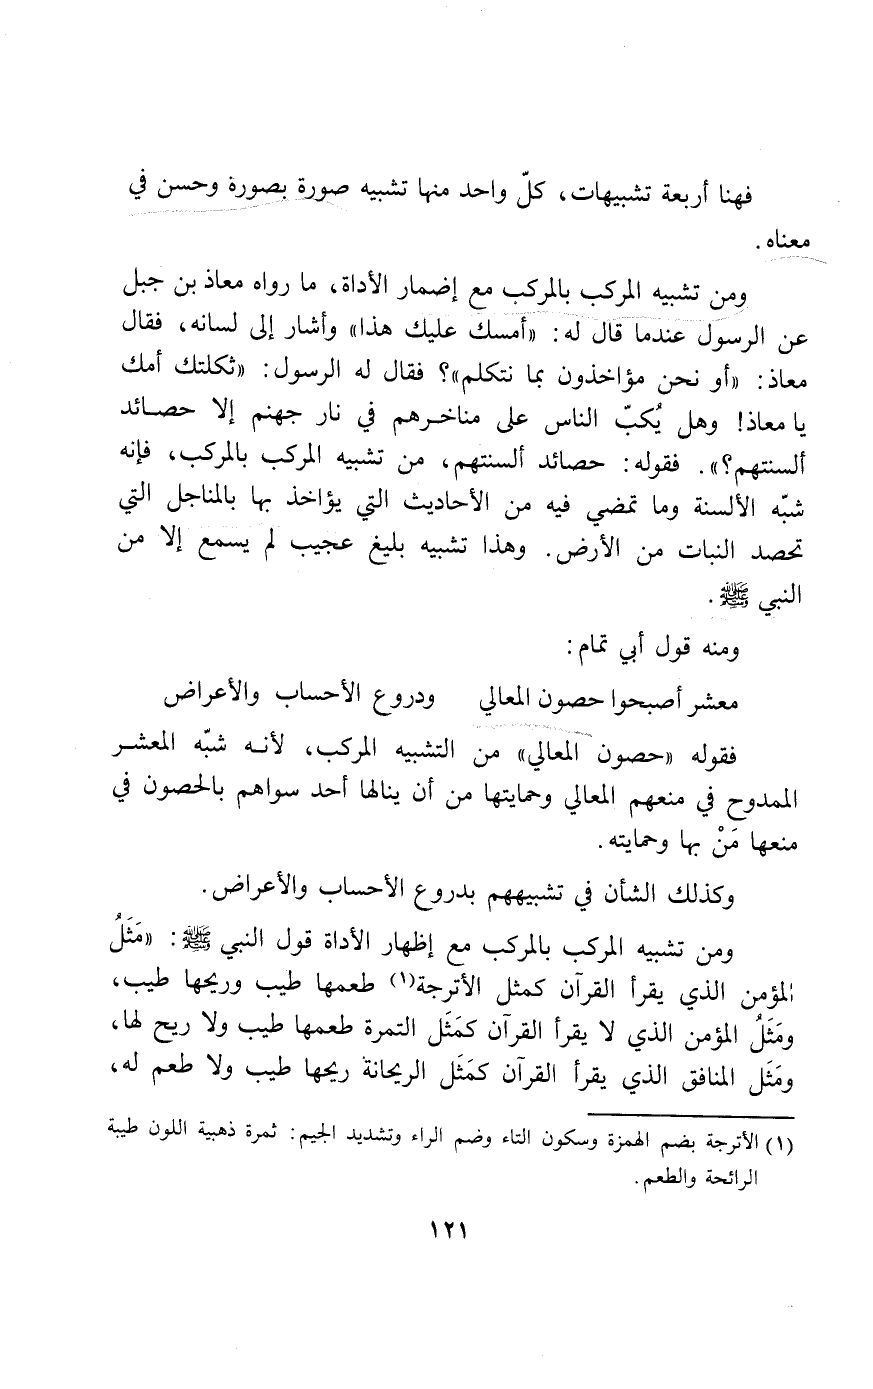 فهنا أربعة تشبيهات، كلّ واحد منها تشبيه صورة بصورة وحسن في
معناه.
ومن تشبيه المركب بالمركب مع إضمار الأداة، ما رواه معاذ بن جبل
عن الرسول عندما قال له: «أمسك عليك هذا» وأشار إلى لسانه، فقال
معاذ: «أو نحن مؤاخذون بما نتكلم»؟ فقال له الرسول: «ثكلتك أمك
يا معاذ! وهل يُكبّ الناس على مناخرهم في نار جهنم إلا حصائد
ألسنتهم؟». فقوله: حصائد ألسنتهم، من تشبيه المركب بالمركب، فإنه
شبّه الألسنة وما تمضي فيه من الأحاديث التي يؤاخذ بها بالمناجل التي
تحصد النبات من الأرض. وهذا تشبيه بليغ عجيب لم يسمع إلا من
النبي ﷺ.
ومنه قول أبي تمام:
معشر أصبحوا حصون المعالي ودروع الأحساب والأعراض
فقوله «حصون المعالي» من التشبيه المركب، لأنه شبّه المعشر
الممدوح في منعهم المعالي وحمايتها من أن ينالها أحد سواهم بالحصون في
منعها مَنْ بها وحمايته.
وكذلك الشأن في تشبيههم بدروع الأحساب والأعراض.
ومن تشبيه المركب بالمركب مع إظهار الأداة قول النبي ﷺ: «مَثَلُ
المؤمن الذي يقرأ القرآن كمثل الأترجة(١) طعمها طيب وريحها طيب،
ومَثَلُ المؤمن الذي لا يقرأ القرآن كمَثَل التمرة طعمها طيب ولا ريح لها،
ومَثَل المنافق الذي يقرأ القرآن كمَثَل الريحانة ريحها طيب ولا طعم له،
(١) الأترجة بضم الهمزة وسكون التاء وضم الراء وتشديد الجيم: ثمرة ذهبية اللون طيبة
الرائحة والطعم.
١٢١